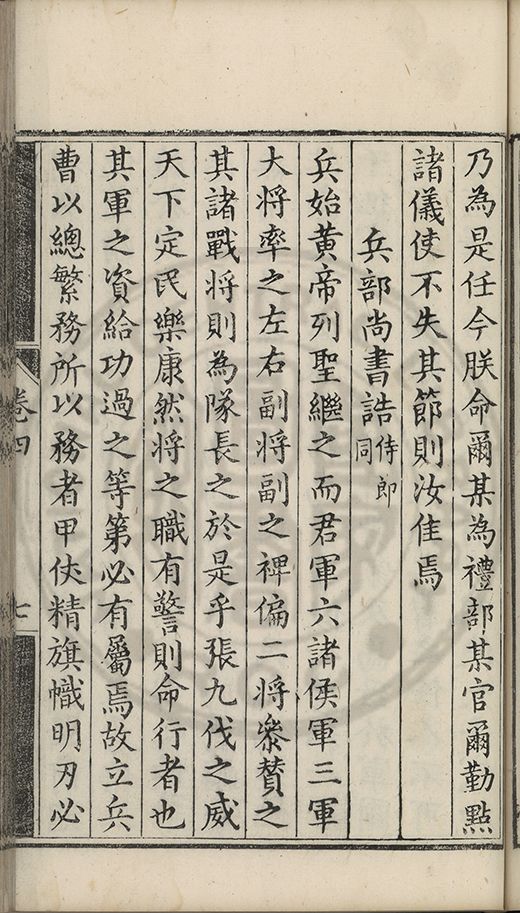 乃為是任今朕命爾某為禮部某官爾勤點
諸儀使不失其節則汝隹焉
兵部尚書誥侍郎同
兵始黃帝列聖繼之而君軍六諸侯軍三軍
大将率之左右副将副之裨偏二将叅賛之
其諸戰将則為隊長之於是乎張九伐之威
天下定民樂康然将之職有警則命行者也
其軍之資給功過之等第必有屬焉故立兵
曹以總繁務所以務者甲使精旗幟明刃必
卷四
七